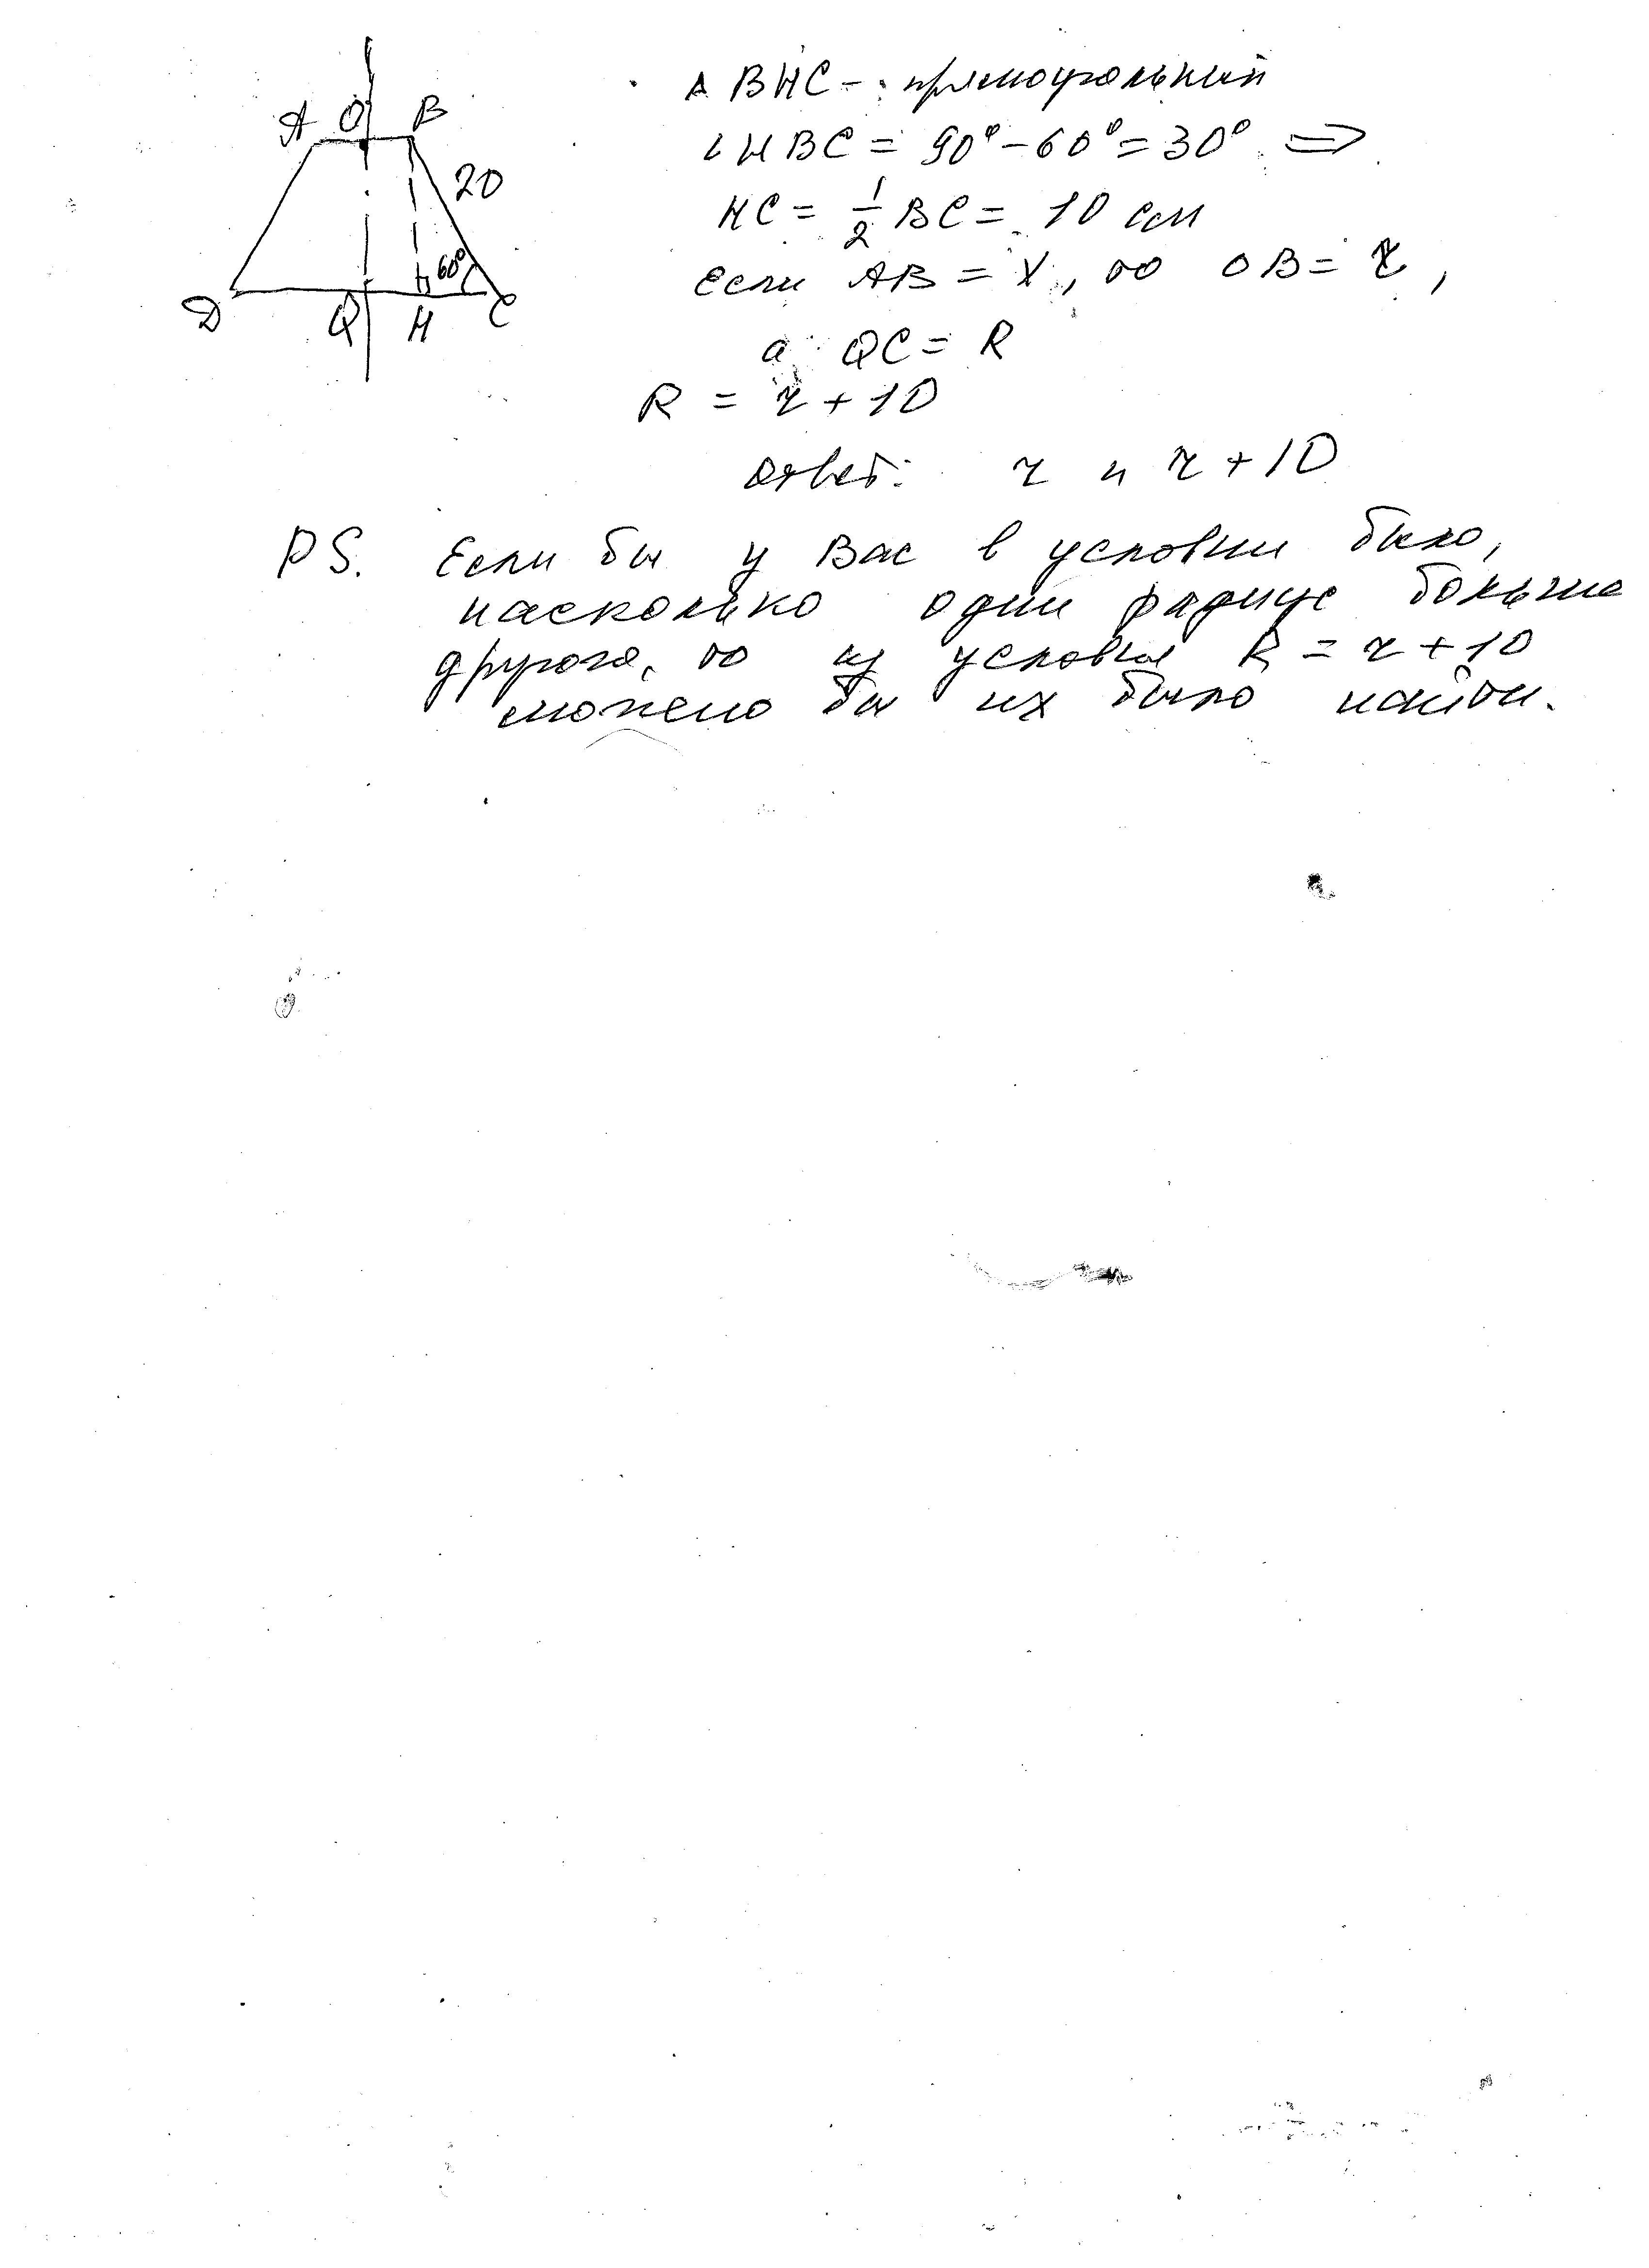 A O B
20
60°
D Q H C
Δ BHC - прямоугольный
∠HBC = 90° - 60° = 30° ⇒
HC = 1/2 BC = 10 см
Если AB = X, то OB = r,
а QC = R
R = r + 10
Ответ: r и r + 10
PS. Если бы у Вас в условии было,
насколько один радиус больше
другого, то из условия R = r + 10
можно бы их было найти.